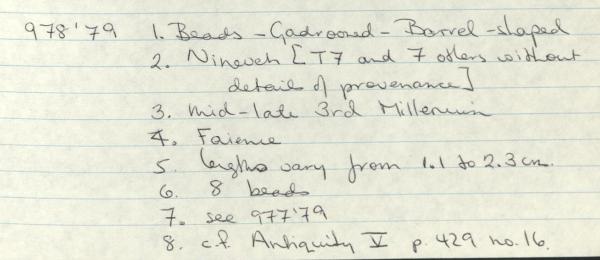 978'79 1. Beads - Gadrooned - Barrel-shaped
2. Nineveh [T7 and 7 others without
details of provenance]
3. mid-late 3rd Millenium
4. Faience
5. lengths vary from 1.1 to 2.3 cm.
6. 8 beads
7. see 977'79
8. c.f. Antiquity V p. 429 no. 16.